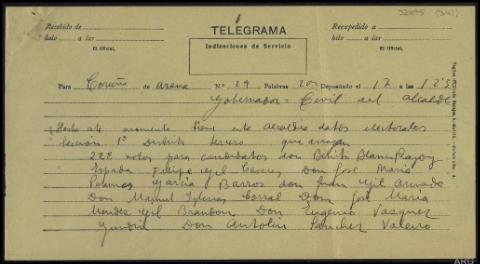 32475 (341)
TELEGRAMA
Recibido de
hilo a las
El Oficial,
Indicaciones de Servicio
Expedido a
hilo a las
El Oficial,
Para Coruña de arena N.º 29 Palabras Depositado el 17 a las
Gobernador = Civil del Alcalde
Hasta este momento tiene esta Alcaldia datos electorales
sección 1ª Distrito tercero que arrojan
222 votos para candidatos don Benito Blanco Rajoy
Espada Felipe Gil Casares Don José Maria
García Barros don Juan Gil Armada
Don Manuel Iglesias Corral Don José Maria
Mendez Gil Brandon Don Eugenio Vazquez
Gundin Don Antolin Sanchez Valeiro